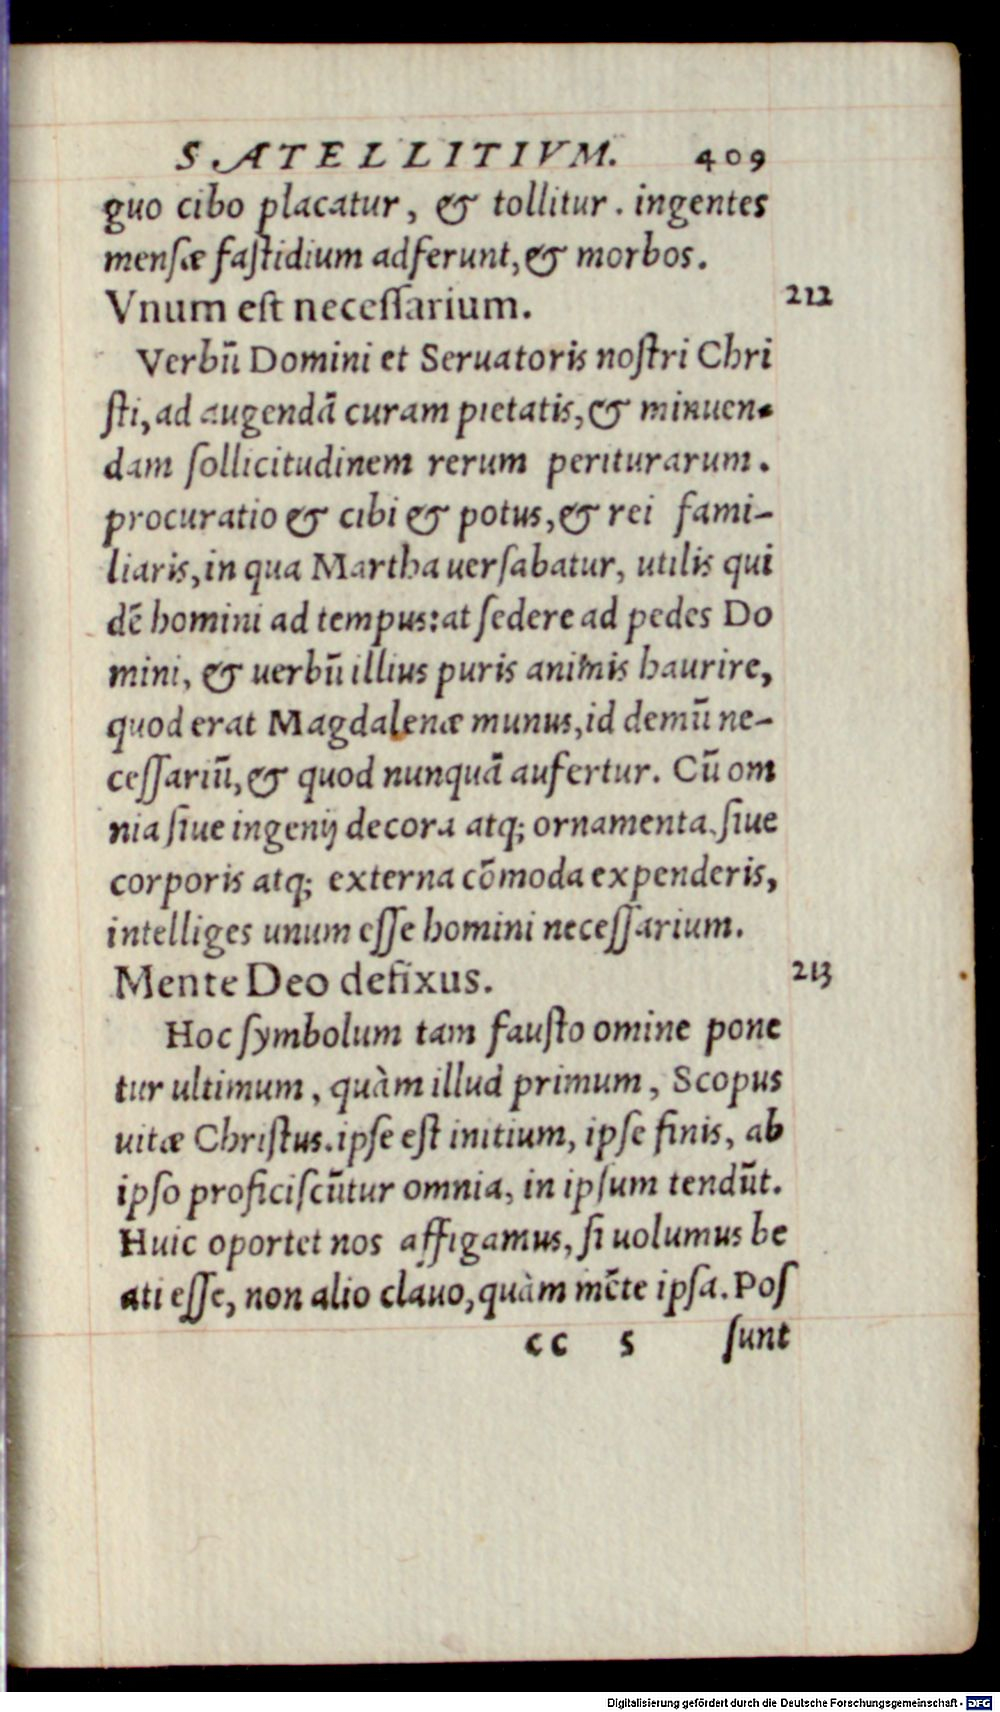 SATELLITIVM. 409
guo cibo placatur, & tollitur. ingentes
mensæ fastidium adferunt, & morbos.
Vnum est necessarium. 212
Verbū Domini et Seruatoris nostri Chri
sti, ad augendā curam pietatis, & minuen-
dam sollicitudinem rerum periturarum.
procuratio & cibi & potus, & rei fami-
liaris, in qua Martha uersabatur, utilis qui
dē homini ad tempus: at sedere ad pedes Do
mini, & uerbū illius puris animis haurire,
quod erat Magdalenæ munus, id demū ne-
cessariū, & quod nunquā aufertur. Cū om
nia siue ingenij decora atq; ornamenta, siue
corporis atq; externa cōmoda expenderis,
intelliges unum esse homini necessarium.
Mente Deo defixus. 213
Hoc symbolum tam fausto omine pone
tur ultimum, quàm illud primum, Scopus
uitæ Christus. ipse est initium, ipse finis, ab
ipso proficiscūtur omnia, in ipsum tendūt.
Huic oportet nos affigamus, si uolumus be
ati esse, non alio clauo, quàm mēte ipsa. Pos
cc 5 sunt
Digitalisierung gefördert durch die Deutsche Forschungsgemeinschaft - DFG